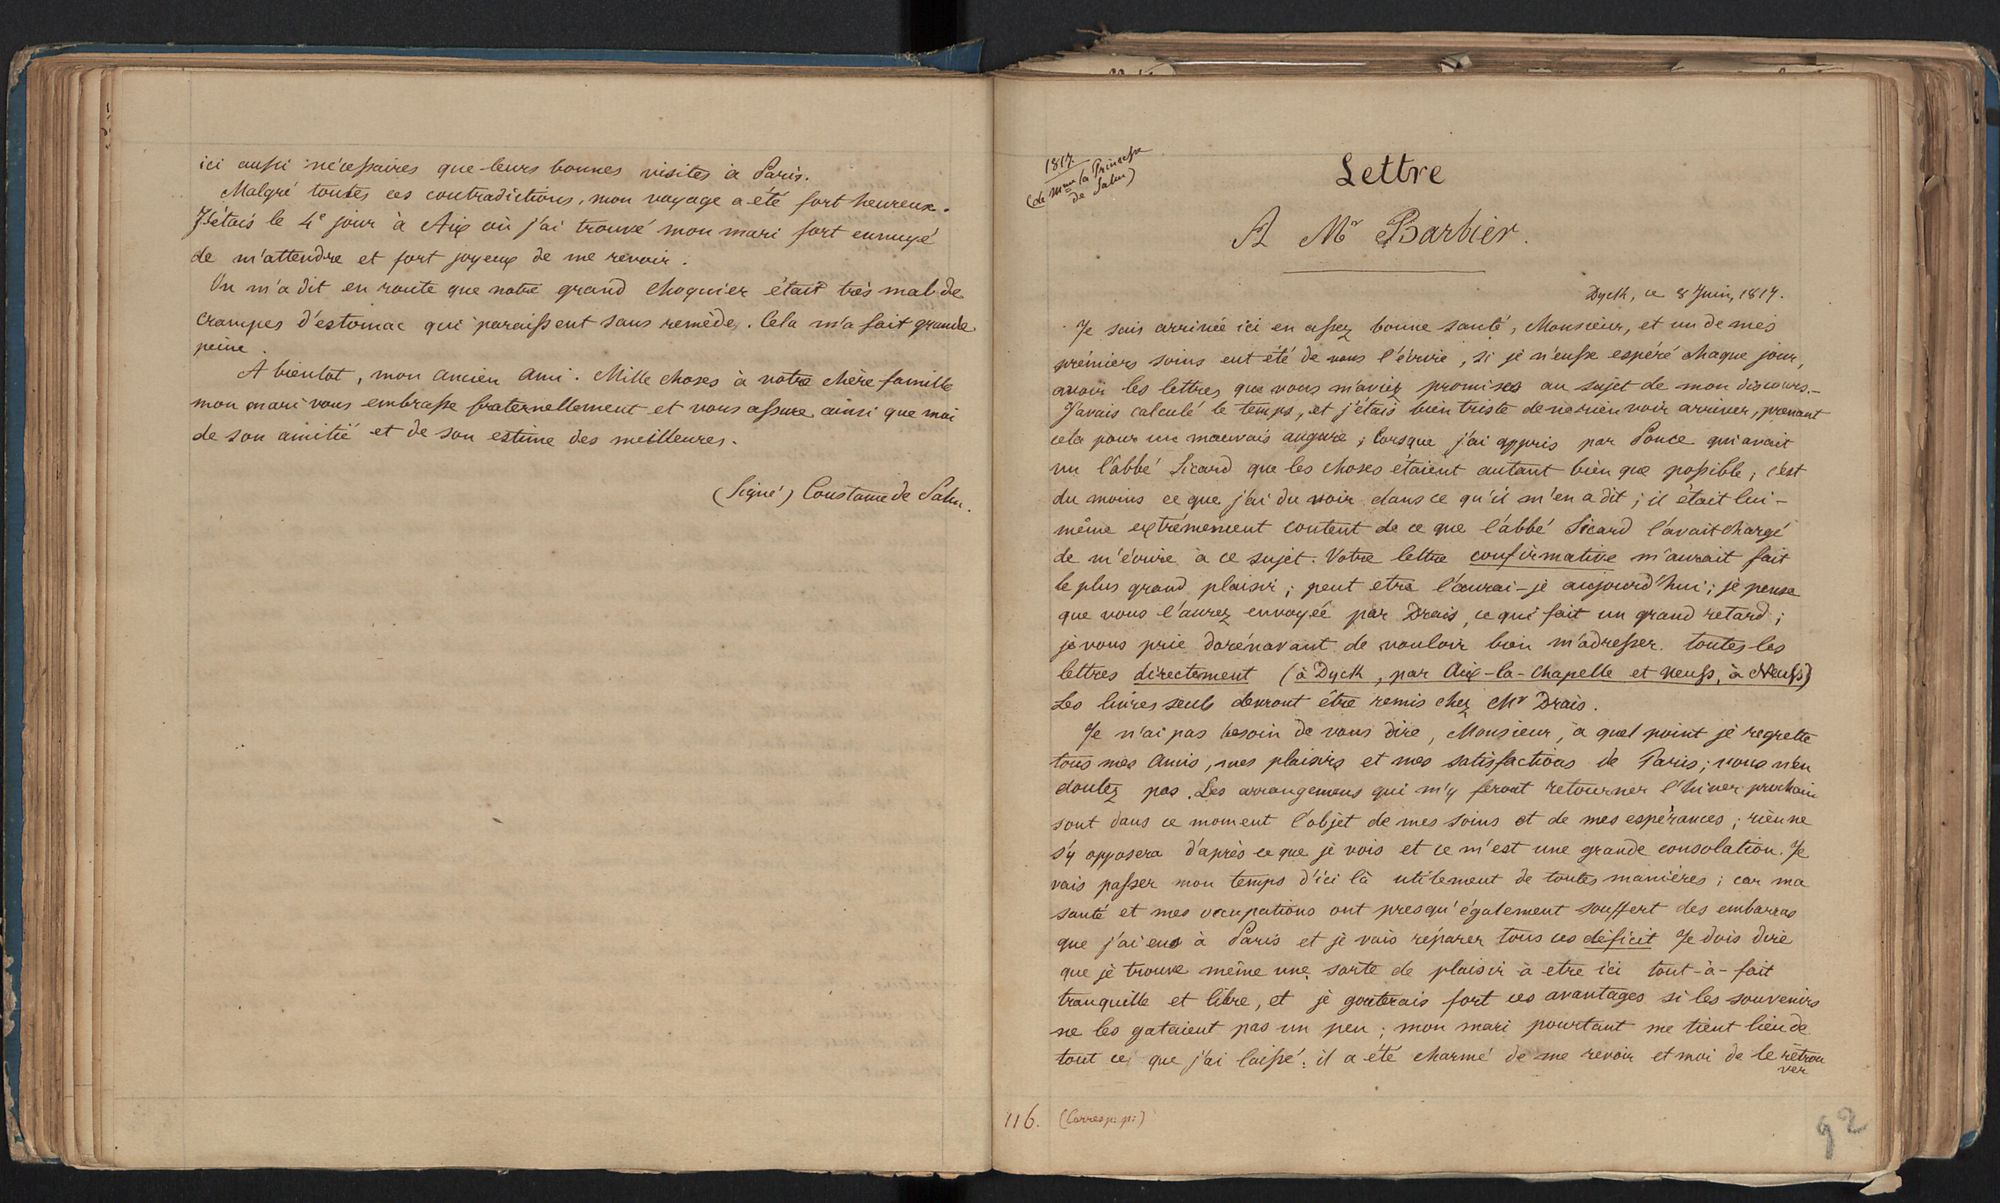 ici aussi nécessaires que leurs bonnes visites à Paris.
Malgré toutes ces contradictions, mon voyage a été fort heureux.
J'étais le 4e jour à Aix où j'ai trouvé mon mari fort ennuyé
de m'attendre et fort joyeux de me revoir.
On m'a dit en route que notre grand Choquier était très mal de
crampes d'estomac qui paraissent sans remède. Cela m'a fait grande
peine.
A bientot, mon ancien ami. Mille choses à votre chère famille
mon mari vous embrasse fraternellement et vous assure ainsi que moi
de son amitié et de son estime des meilleures.
(Signé) Constance de Salm.
1817.
(de Mme la Princesse
de Salm)
Lettre
A Mr Barbier.
Dyck, ce 8 Juin, 1817.
Je suis arrivée ici en assez bonne santé, Monsieur, et un de mes
prémiers soins eut été de vous l'écrire, si je n'eusse espéré chaque jour,
avoir les lettres que vous m'aviez promises au sujet de mon discours.-
J'avais calculé le temps, et j'étais bien triste de ne rien voir arriver, prenant
cela pour un mauvais augure; lorsque j'ai appris par Ponce qui avait
vu l'abbé Sicard que les choses étaient autant bien que possible; c'est
du moins ce que j'ai du voir dans ce qu'il m'en a dit; il était lui-
même extrémement content de ce que l'abbé Sicard l'avait chargé
de m'écrire à ce sujet. Votre lettre confirmative m'aurait fait
le plus grand plaisir; peut etre l'aurai-je aujourd'hui; je pense
que vous l'aurez envoyée par Drais, ce qui fait un grand retard;
je vous prie dorénavant de vouloir bien m'adresser toutes les
lettres directement (à Dyck, par Aix-la-Chapelle et Neuss, à Neuss)
Les livres seuls devront être remis chez Mr Drais.
Je n'ai pas besoin de vous dire, Monsieur, à quel point je regrette
tous mes amis, mes plaisirs et mes satisfactions de Paris; vous n'en
doutez pas. Les arrangemens qui m'y feront retourner l'hiver prochain
sont dans ce moment l'objet de mes soins et de mes espérances; rien ne
s'y opposera d'après ce que je vois et ce m'est une grande consolation. Je
vais passer mon temps d'ici là utilement de toutes manières; car ma
santé et mes occupations ont presqu'également souffert des embarras
que j'ai eus à Paris et je vais réparer tous ces déficit Je dois dire
que je trouve même une sorte de plaisir à etre ici tout-à-fait
tranquille et libre, et je gouterais fort ces avantages si les souvenirs
ne les gataient pas un peu; mon mari pourtant me tient lieu de
tout ce que j'ai laissé; il a été charmé de me revoir et moi de le retrou
ver
116. (Corresp. p:)
92